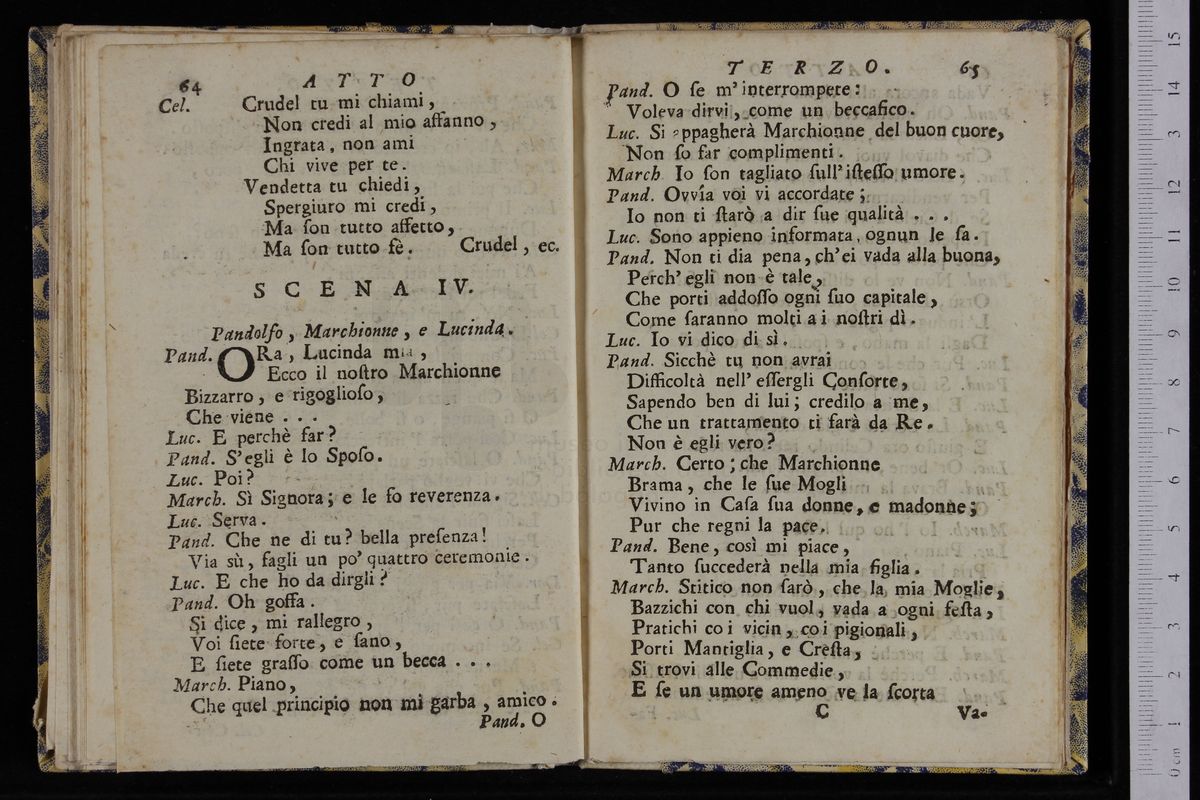 64 ATTO
Cel. Crudel tu mi chiami,
Non credi al mio affanno,
Ingrata, non ami
Chi vive per te.
Vendetta tu chiedi,
Spergiuro mi credi,
Ma ſon tutto affetto,
Ma ſon tutto fè. Crudel, ec.
SCENA IV.
Pandolfo, Marchionne, e Lucinda.
Pand. ORa, Lucinda mia,
Ecco il noſtro Marchionne
Bizzarro, e rigoglioſo,
Che viene . . .
Luc. E perchè far?
Pand. S'egli è lo Spoſo.
Luc. Poi?
March. Sì Signora; e le fo reverenza.
Luc. Serva.
Pand. Che ne di tu? bella preſenza!
Via sù, fagli un po' quattro ceremonie.
Luc. E che ho da dirgli?
Pand. Oh goffa.
Si dice, mi rallegro,
Voi ſiete forte, e ſano,
E ſiete graſſo come un becca . . .
March. Piano,
Che quel principio non mi garba, amico.
Pand. O
TERZO. 65
Pand. O ſe m'interrompete:
Voleva dirvi, come un beccafico.
Luc. Si appagherà Marchionne del buon cuore,
Non ſo far complimenti.
March Io ſon tagliato ſull'iſteſſo umore.
Pand. Ovvía voi vi accordate;
Io non ti ſtarò a dir ſue qualità . . .
Luc. Sono appieno informata, ognun le ſa.
Pand. Non ti dia pena, ch'ei vada alla buona,
Perch'egli non è tale,
Che porti addoſſo ogni ſuo capitale,
Come faranno molti a i noſtri dì.
Luc. Io vi dico di sì.
Pand. Sicchè tu non avrai
Difficoltà nell'eſſergli Conſorte,
Sapendo ben di lui; credilo a me,
Che un trattamento ti farà da Re.
Non è egli vero?
March. Certo; che Marchionne
Brama, che le ſue Mogli
Vivino in Caſa ſua donne, e madonne;
Pur che regni la pace.
Pand. Bene, così mi piace,
Tanto ſuccederà nella mia figlia.
March. Stitico non ſarò, che la mia Moglie,
Bazzichi con chi vuol, vada a ogni feſta,
Pratichi co i vicin, co i pigionali,
Porti Mantiglia, e Creſta,
Si trovi alle Commedie,
E ſe un umore ameno ve la ſcorta
C Va-
15
14
13
12
11
10
9
8
7
6
5
4
3
2
1
0 cm